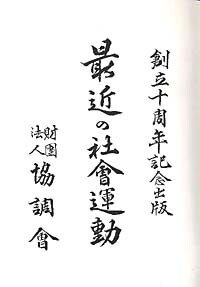 創立十周年記念出版
最近の社會運動
財團法人 協調會